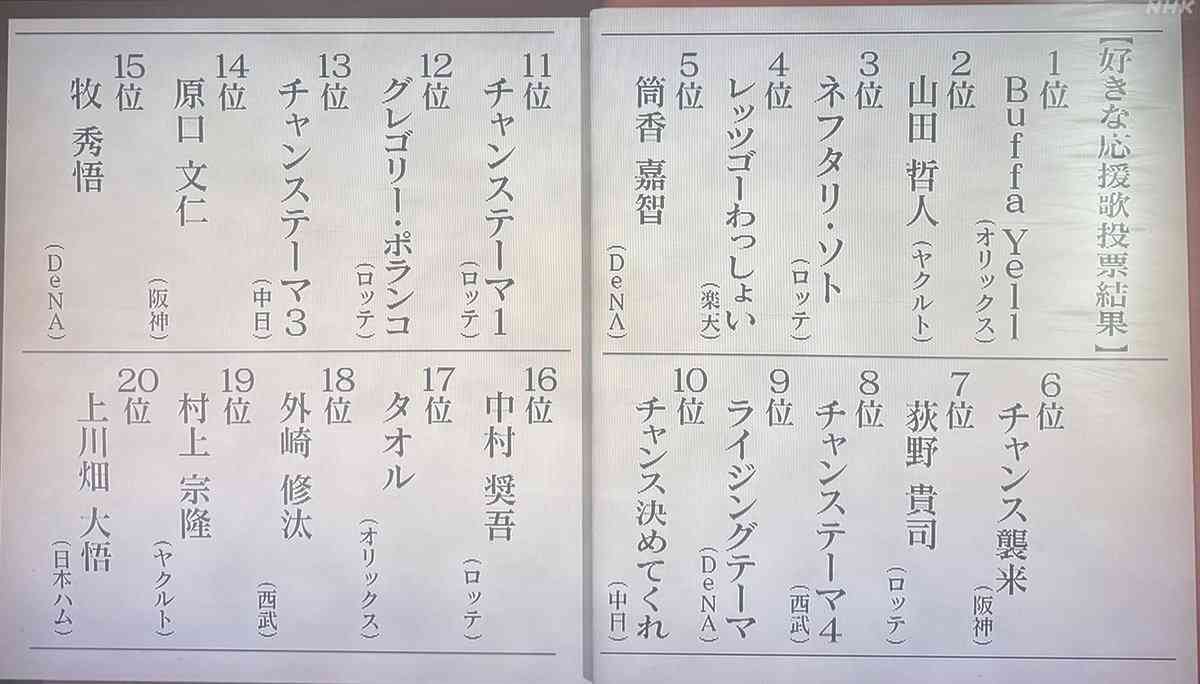 NHK
【好きな応援歌投票結果】
1位
Buffa Yell
(オリックス)
2位
山田 哲人
(ヤクルト)
3位
ネフタリ・ソト
(ロッテ)
4位
レッツゴーわっしょい
(楽天)
5位
筒香 嘉智
(DeNA)
6位
チャンス襲来
(阪神)
7位
荻野 貴司
(ロッテ)
8位
チャンステーマ4
(西武)
9位
ライジングテーマ
(DeNA)
10位
チャンス決めてくれ
(中日)
11位
チャンステーマ1
(ロッテ)
12位
グレゴリー・ポランコ
(ロッテ)
13位
チャンステーマ3
(中日)
14位
原口 文仁
(阪神)
15位
牧 秀悟
(DeNA)
16位
中村 奨吾
(ロッテ)
17位
タオル
(オリックス)
18位
外崎 修汰
(西武)
19位
村上 宗隆
(ヤクルト)
20位
上川畑 大悟
(日本ハム)